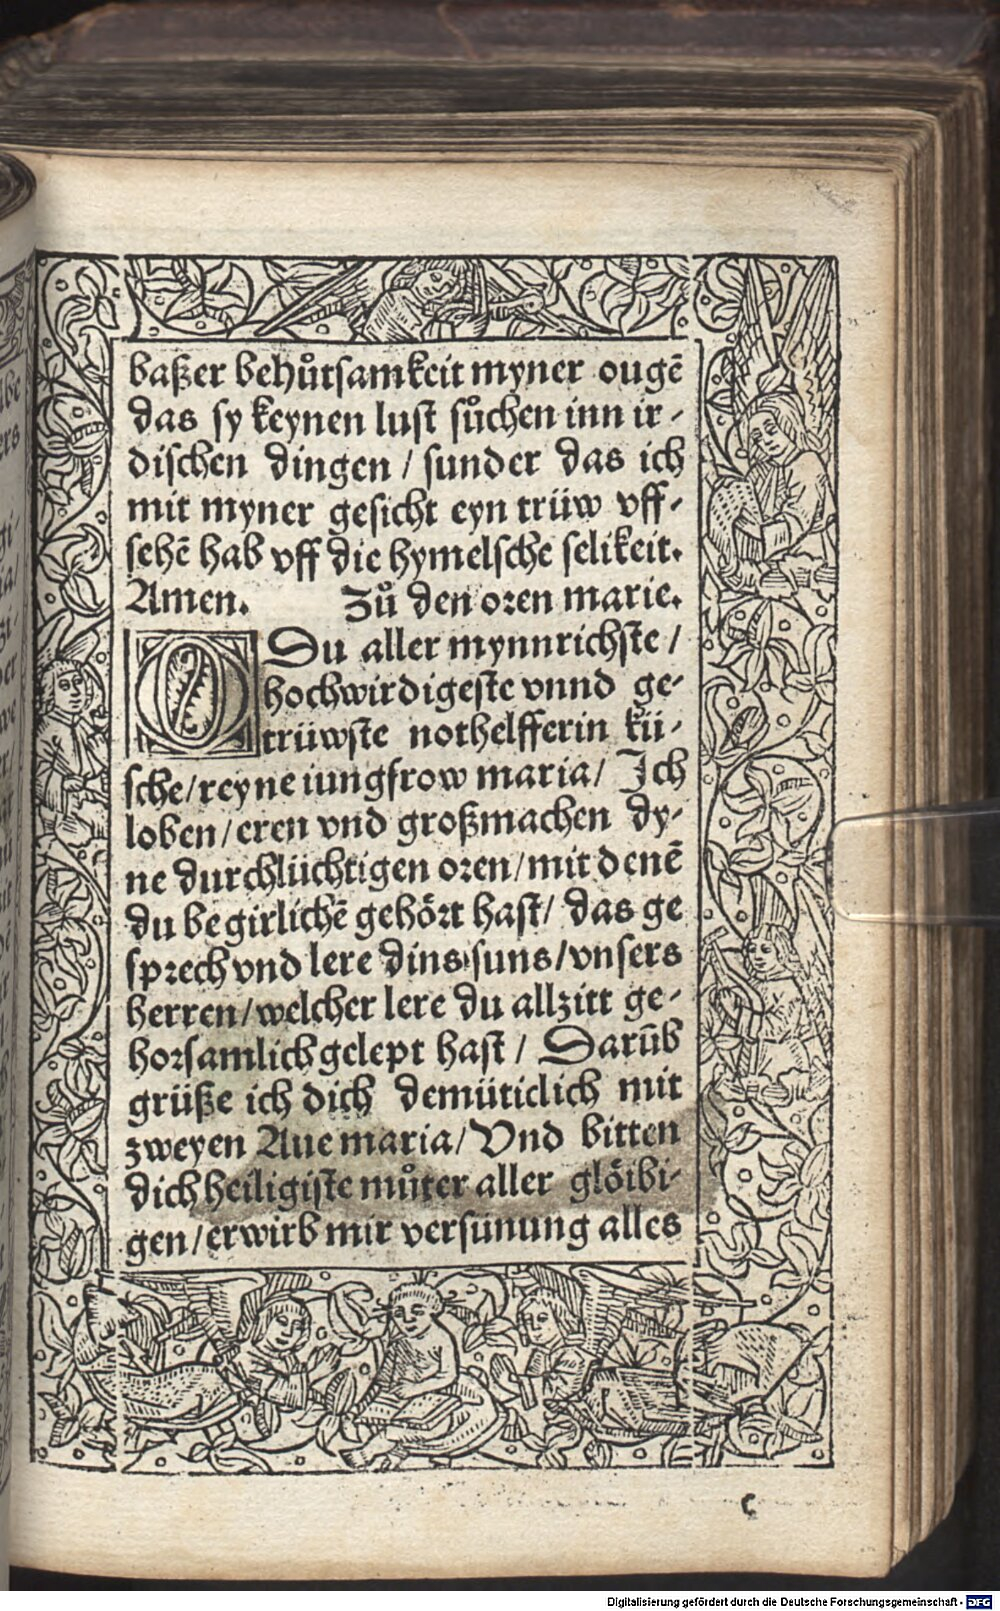 baßer behůtsamkeit myner ougē
das sy keynen lust sůchen inn ir⸗
dischen dingen / sunder das ich
mit myner gesicht eyn trüw vff⸗
sehē hab vff die hymelsche selikeit.
Amen. Zů den oren marie.
O Du aller mynnrichste /
hochwirdigeste vnnd ge⸗
trüwste nothelfferin kü⸗
sche / reyne iungfrow maria / Ich
loben / eren vnd großmachen dy⸗
ne durchlüchtigen oren / mit denē
du begirlichē gehört hast / das ge
sprech vnd lere dins suns / vnsers
herren / welcher lere du allzitt ge⸗
horsamlich gelept hast / Darūb
grüße ich dich demüticlich mit
zweyen Aue maria / Vnd bitten
dich heiligiste můter aller glöibi⸗
gen / erwirb mir versünung alles
c
Digitalisierung gefördert durch die Deutsche Forschungsgemeinschaft - DFG